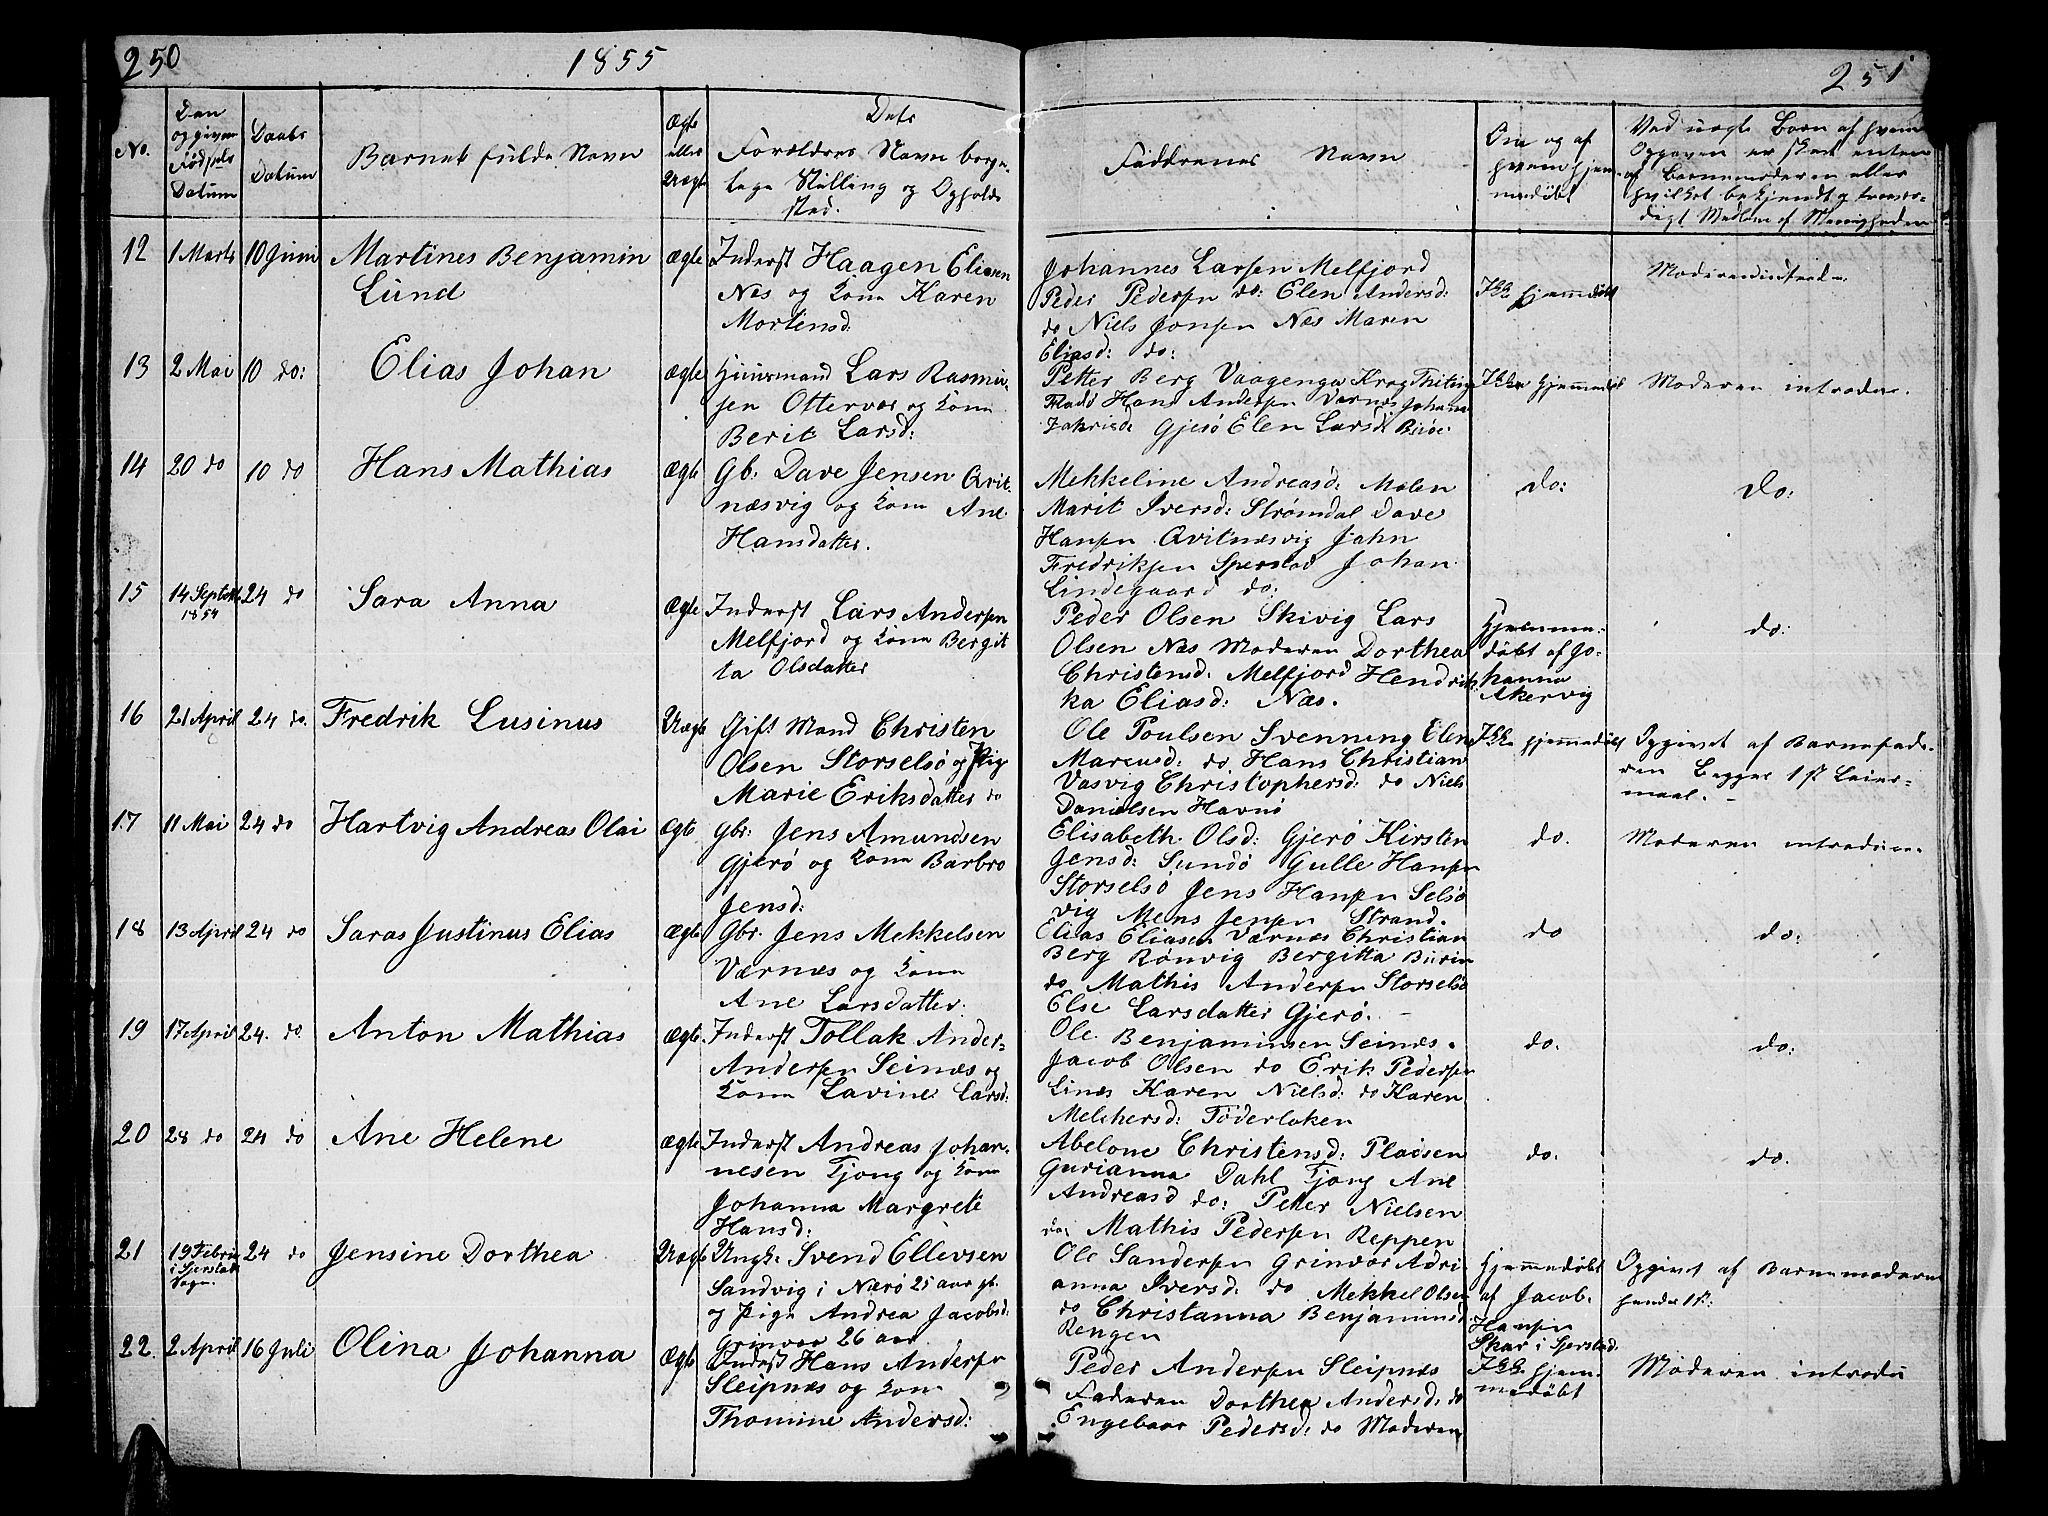 250
1855
251
No.
Den opgivne Fødsels Datum
Daabs Datum
Barnets fulde Navn
Ægte eller Uægte
Dets
Forældres Navn borgerlige Stilling og Opholds
sted.
Faddrenes Navn
Om og af hvem hjemmedøbt
Ved uægte Børn af hvem
Opgaven er skeet enten
af Barnemoderen eller
hvilket bekjendt og troværdigt Medlem af Menigheden
12 1 Marts 10 Juni Martines Benjamin
Lund
Ægte
Inderst Haagen Eliasen
Næs og Kone Karen
Mortensd:
Johannes Larsen Melfjord
Peder Pedersen do: Elen Andersd:
do Niels Jonsen Næs Maren
Eliasd: do:
Ikke hjemmedøbt
13 2 Mai 10 do: Elias Johan
Ægte
Huusmand Lars Rasmussen Ottervær og Kone
Berit Larsd:
Petter Berg
Hans Andersen Værnes Johanna
Gjesø Elen Larsd:
Ikke hjemmedøbt
Moderen introdus.
14 20 do 10 do Hans Mathias
Ægte
Gb: Dave Jensen Qvitnæsvig og Kone Ane
Hansdatter.
Mekkeline Andreasd: Molen
Marit Iversd: Strømdal Dave
Hansen Qvitnæsvig Jahn
Fredriksen Sperstad Johan
Lindegaard do:
do:
do:
15 14 Septbr 1854 24 do Sara Anna
Ægte
Inderst Lars Andersen
Melfjord og Kone Bergitta Olsdatter
Peder Olsen Skivig Lars
Olsen Næs Moderen Dorthea
Christensd: Melfjord Hendrikka Eliasd: Næs.
Hjemmedøbt af Johanna
Akervig
do:
16 21 April 24 do. Fredrik Lusinus
Uægte
Gift Mand Christen
Olsen Storselsø og Pige
Marie Eriksdatter do
Ole Poulsen Svenning Elen
Marcusd: do Hans Christian
Vasvig Christophersd: do Niels
Danielsen Havnø
Ikke hjemmedøbt
Opgivet af Barnefaderen Begges 1ste Leiermaal.
17 11 Mai 24 do Hartvig Andreas Olai
Ægte
Gbr: Jens Amundsen
Gjerø og Kone Barbro
Jensd:
Elisabeth Olsd: Gjerø Kirsten
Jensd: Sundø Gulle Hansen
Storselsø Jens Hansen Selsøvig Mons Jensen Strand.
do.
Moderen introdus.
18 13 April 24 do Saras Justinus Elias
Ægte
Gbr. Jens Mekkelsen
Værnæs og Kone
Ane Larsdatter.
Elias Eliasen Værnæs Christian
Berg Rønvig Bergitta
do Mathis Andersen Storselsø
Else Larsdatter Gjerø.
do
do:
19 17 April 24. do Anton Mathias
Ægte.
Inderst Tollak Ander-
Andersen Seinæs og
Kone Lavine Larsd:
Ole Benjaminsen Seinæs.
Jacob Olsen do Erik Pedersen
Karen Nielsd: do Karen
Melchersd: Føderloken
do.
do:
20 28 do 24 do Ane Helene
Ægte
Inderst Andreas Johannesen Tjong og Kone
Johanna Margrete
Hansd:
Abelone Christensd: Pladsen
Gurianna Dahl Tjong Ane
Andreasd do: Petter Nielsen
do: Mathis Pedersen Reppen
do.
do.
21 19 Februar 24 do Jensine Dorthea
Uægte
Ungk. Svend Ellevsen
Sandvig i Nærø 25 aar gl.
og Pige Andrea Jacobsd:
Grinvær 26 aar.
Ole Sandersen Grinvær Adrianna Iversd: do Mekkel Olsen
do Christanna Benjaminsd:
Rengen
Hjemmedøbt
af Jacob
Hansen
Skar i
Opgivet af Barnemoderen
hendes 1ste:
22. 2 April 16 Juli Olina Johanna
Ægte
Inderst Hans Andersen
Sleipnæs og Kone
Thomine Andersd:
Peder Andersen Sleipnæs
Faderen Dorthea Andersd: do
Engebaar Pedersd: do Moderen
Ikke hjemmedøbt
Moderen introdu